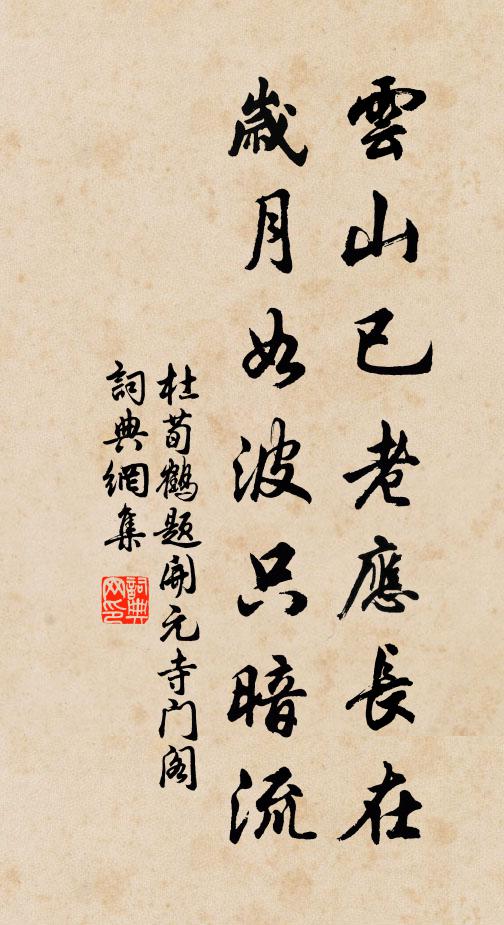 雲山已老應長在
歲月如波只暗流
杜荀鶴題開元寺门阁
詞典網集
詞典
网印